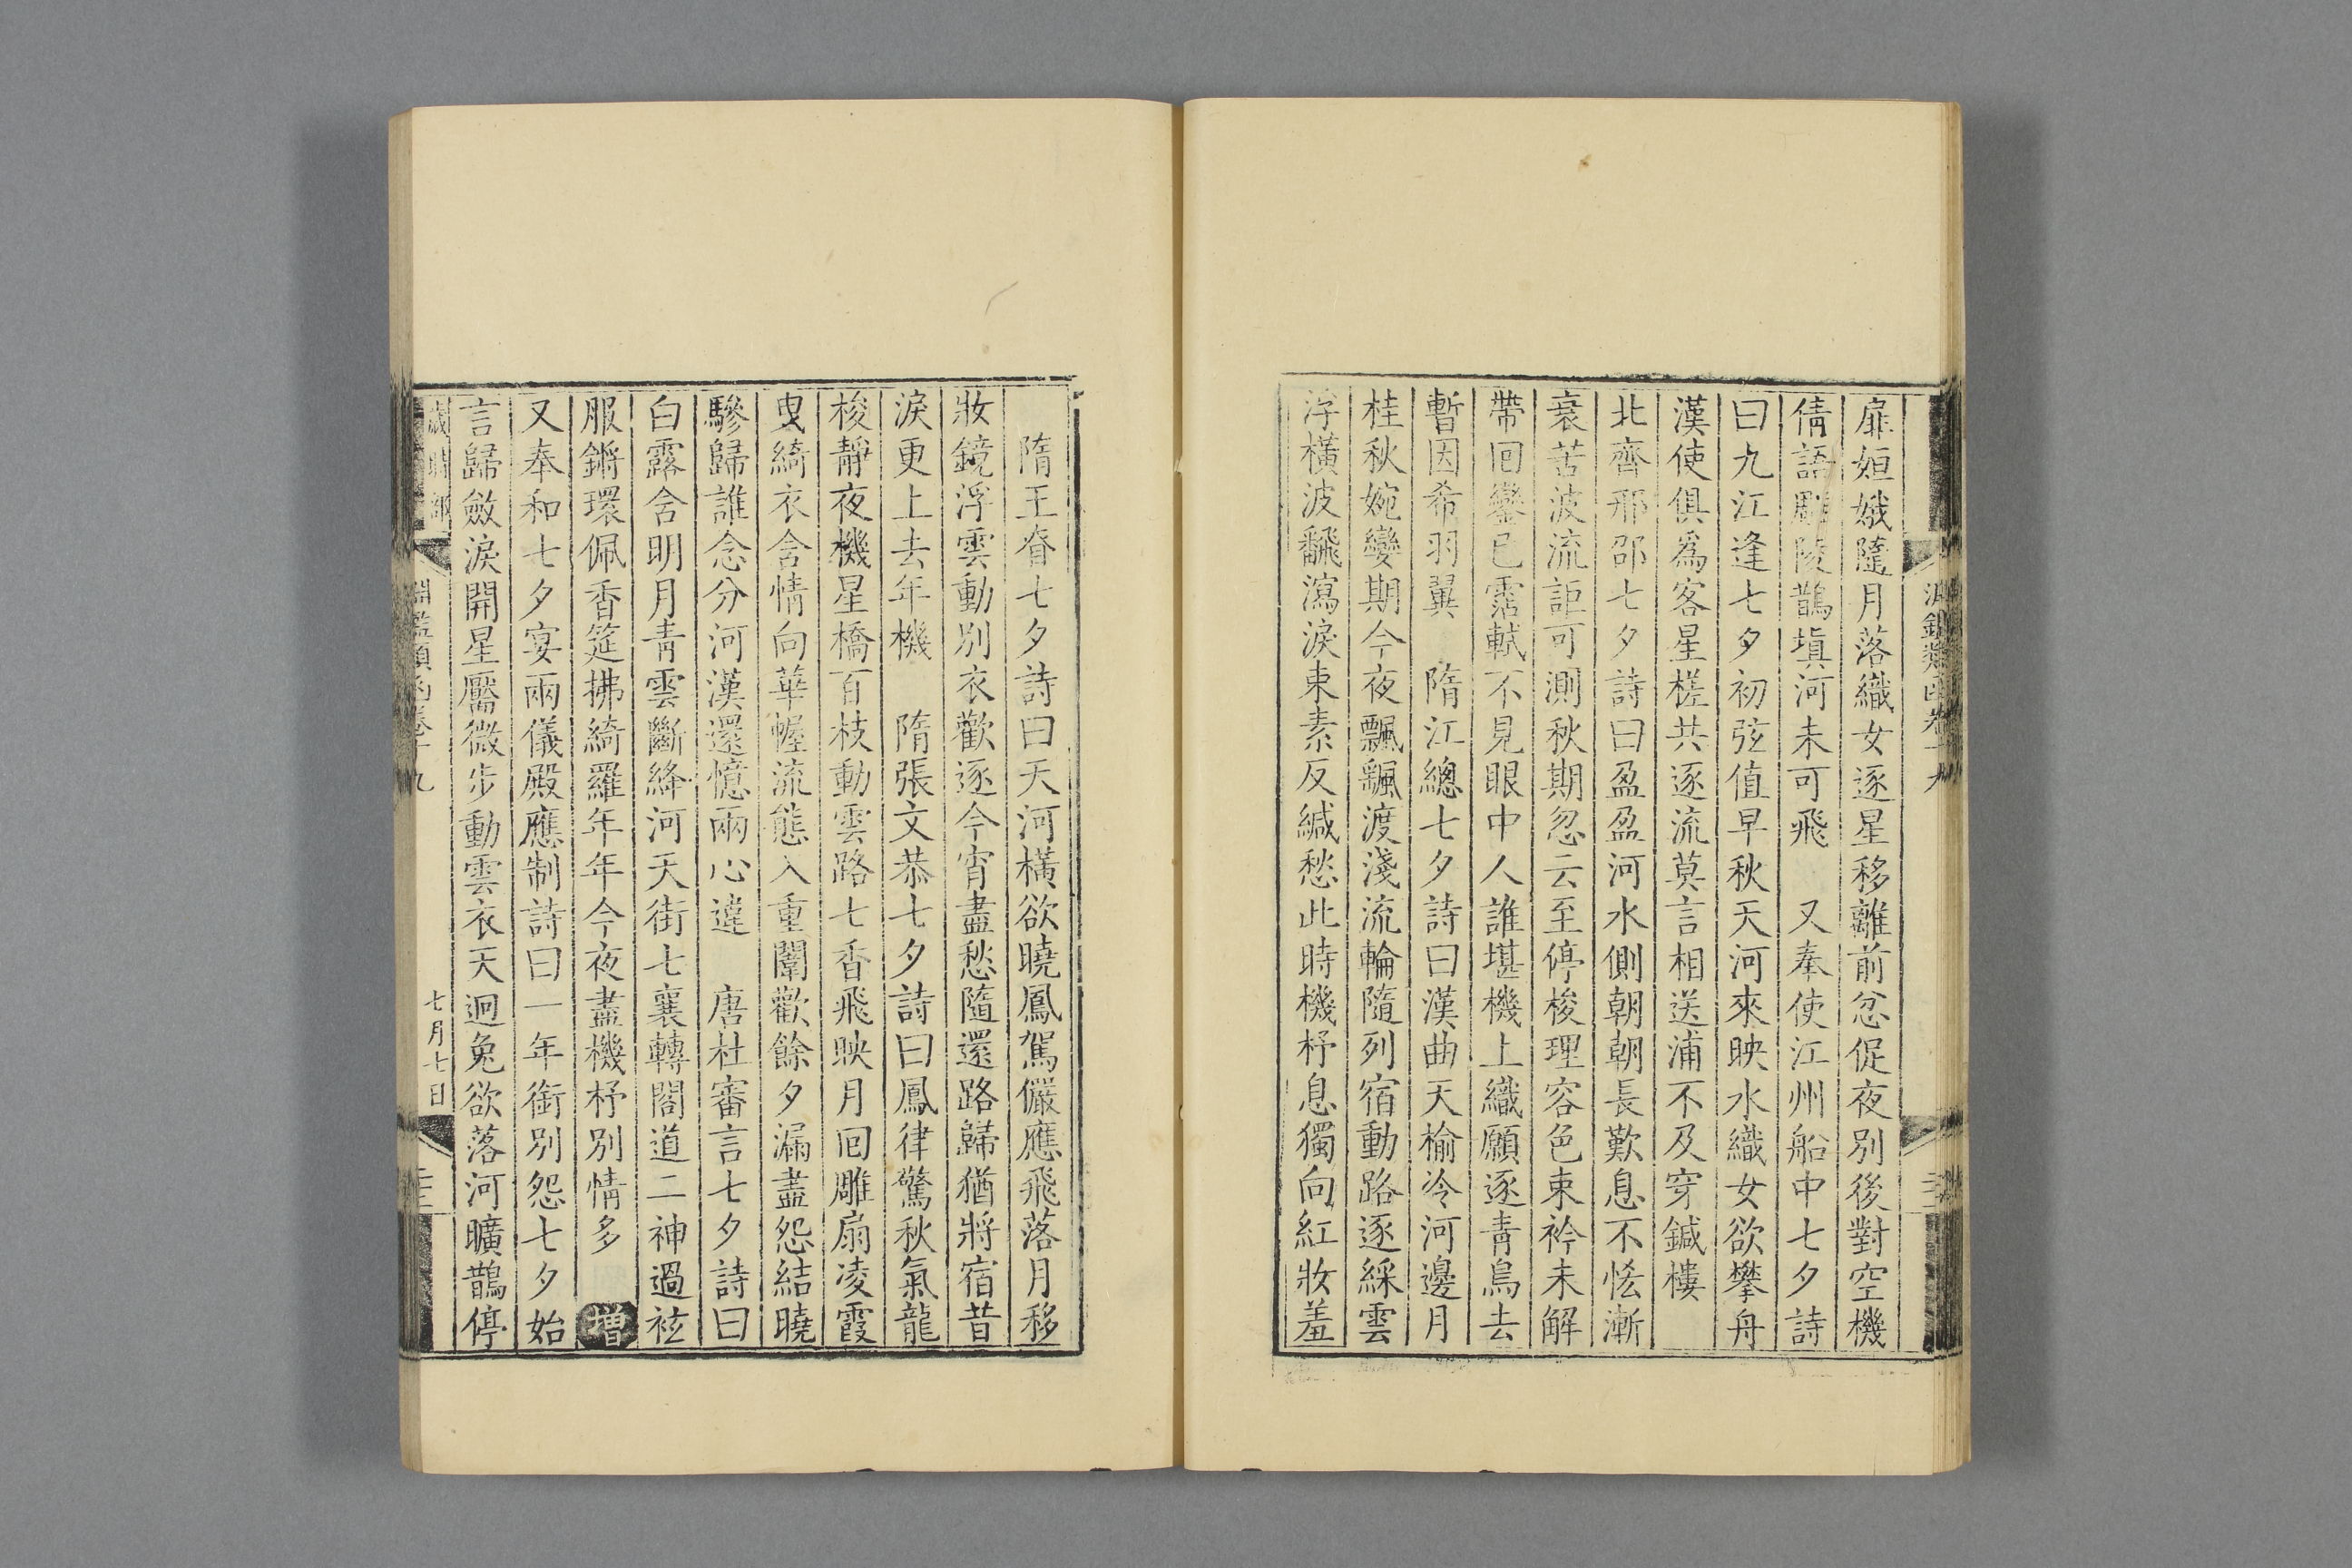 扉姮娥隨月落織女逐星移離前忿促夜別後對空機
倩語雕陵鵲塡河未可飛　又奉使江州船中七夕詩
曰九江逢七夕初弦值早秋天河來映水織女欲攀舟
漢使俱爲客星槎共逐流莫言相送浦不及穿鍼樓
北齊邢邵七夕詩曰盈盈河水側朝朝長歎息不恡漸
衰苦波流詎可測秋期忽云至停梭理容色束衿未解
帶回鑾已霑軾不見眼中人誰堪機上織願逐青鳥去
暫因希羽翼　隋江總七夕詩曰漢曲天榆冷河邊月
桂秋婉孌期今夜飄颻渡淺流輪隨列宿動路逐綵雲
浮橫波翻瀉淚束素反緘愁此時機杼息獨向紅妝羞
隋王眘七夕詩曰天河橫欲曉鳳駕儼應飛落月移
妝鏡浮雲動別衣歡逐今宵盡愁隨還路歸猶將宿昔
淚更上去年機　隋張文恭七夕詩曰鳳律驚秋氣龍
梭靜夜機星橋百枝動雲路七香飛映月回雕扇凌霞
曳綺衣含情向華幄流態入重闈歡餘夕漏盡怨結曉
驂歸誰念分河漢還憶兩心違　唐杜審言七夕詩曰
白露含明月青雲斷絳河天街七襄轉閣道二神過袨
服鏘環佩香筵拂綺羅年年今夜盡機杼別情多　增
又奉和七夕宴兩儀殿應制詩曰一年銜別怨七夕始
言歸斂淚開星靨微步動雲衣天迥兔欲落河曠鵲停
歲時部　淵鑑類函卷十九　七月七日